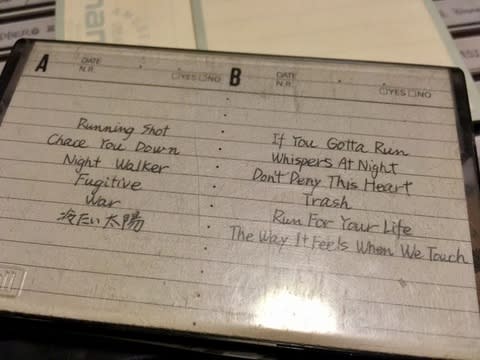 A
DATE
N.R. □YES□NO
Running Shot
Chace You Down
Night Walker
Fugitive
War
冷たい太陽
B
DATE
N.R. □YES□NO
If You Gotta Run
Whispers At Night
Don't Deny This Heart
Trash
Run For Your Life
The Way It Feels When We Touch